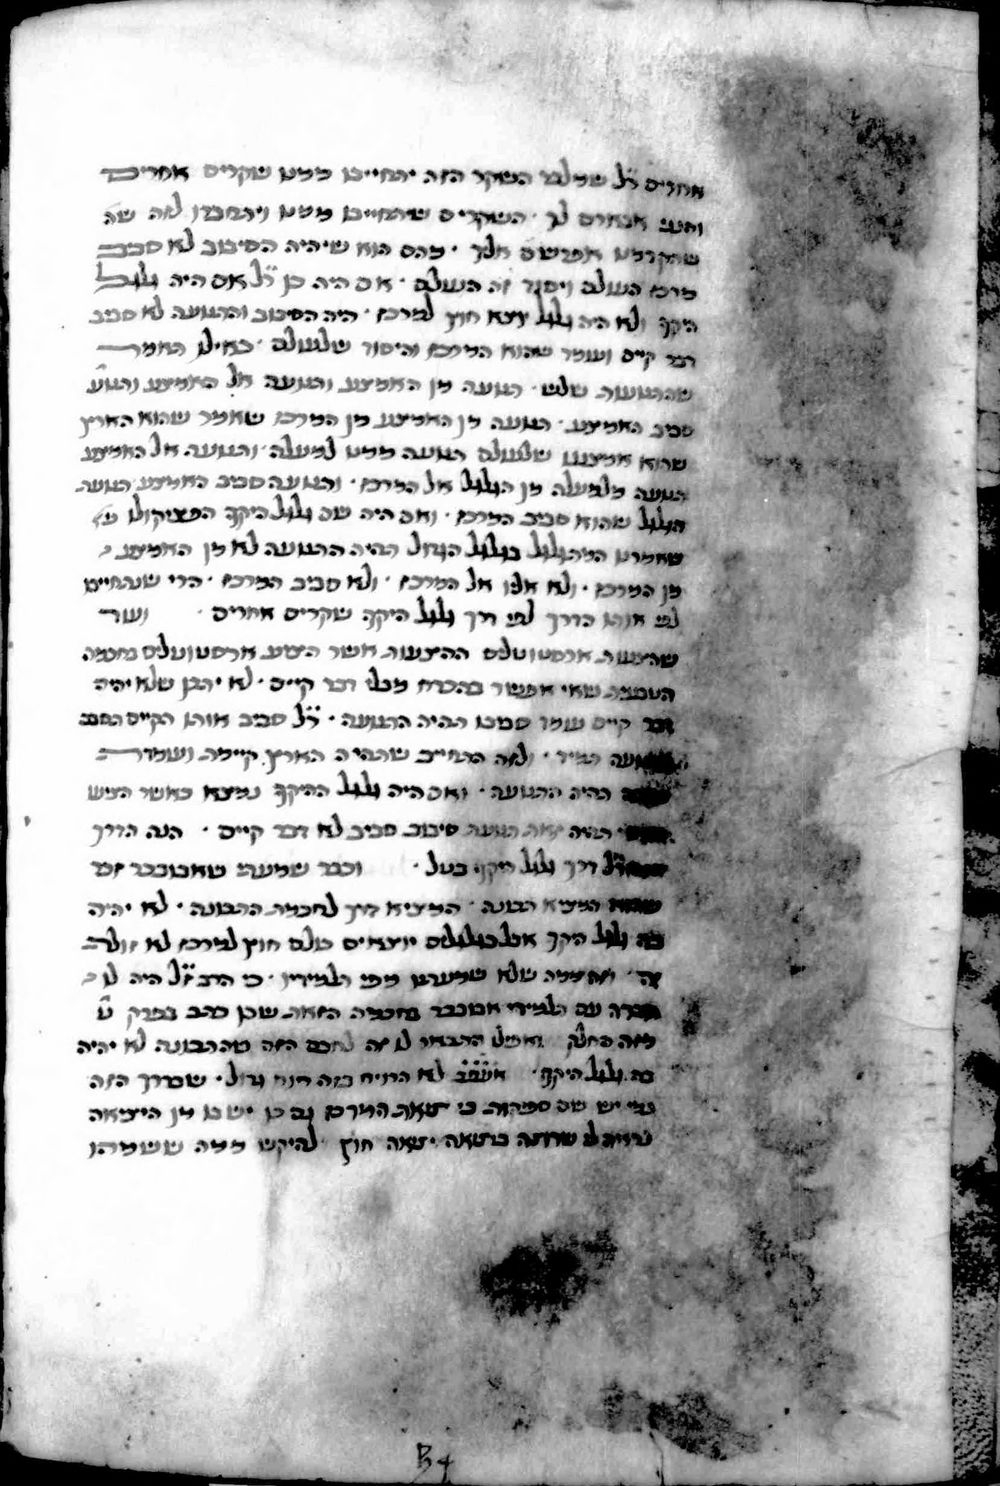 אחרים ר״ל שמלבד השקר הזה יתחייבו ממנו שקרים אחרים
והנני אבארם לך · השקרים שיתחייבו ממנו ויתחברו לזה שה׳
שהקדמנו אפרשם אליך · מהם הוא שיהיה הסיבוב לא סביב
מרכז העולם ויסוד זה העולם · אם היה כן ר״ל אם היה גלגל
היקף ולא היה גלגל יוצא חוץ למרכז · היה הסיבוב והתנועה לא סביב
דבר קיים ועומד שהוא המרכז והיסוד שלעולם · כאילו תאמר
שהתנועות שלש · תנועה מן האמצע ותנועה אל האמצע ותנוע׳
סביב האמצע · תנועה מן האמצע מן המרכז שאמר שהוא הארץ
שהוא אמצעו שלעולם תנועה ממנו למעלה · ותנועה אל האמצע
תנועה מלמעלה מן הגלגל אל המרכז · ותנועה סביב האמצע תנועת
הגלגל שהוא סביב המרכז · ואם היה שם גלגל היקף הפציקולו
שאמרנו המהגלגל בגלגל הגדול תהיה התנועה לא מן האמצע
מן המרכז · ולא אליו אל המרכז · ולא סביב המרכז · הרי שנתחייבו
לפי אותו הדרך לפי דרך גלגל היקף שקרים אחרים · ועוד
שהצעות ארסטוטלוס ההצעות אשר הציע ארסטוטלוס בחכמה
הטבעית שאי אפשר בהכרח מבלי דבר קיים · לא יתכן שלא יהיה
דבר קיים עומד סביבו תהיה התנועה · ר״ל סביב אותו הקיים תסבב
תנועה תמיד · ולזה התחייב שתהיה הארץ קיימת ועומדת
תהיה התנועה · ואם היה גלגל ההיקף נמצא כאשר הציעו
תהיה זאת תנועת סיבוב סביב לא דבר קיים · הנה הדרך
דרך גלגל היקף בטל · וכבר שמעתי שאבובכר זכר
שהוא המציא תבונה · המציא דרך לחכמת התבונה · לא יהיה
בה גלגל היקף אבל בגלגלים יוצאים כולם חוץ למרכז לא זולת
זה · וזה ממה שלא שמעתיו מפי תלמידיו · כי הרב ז״ל היה לו
חברה עם תלמידי אבובכר בחכמה הזאת שכן כתב בפרק ט׳
מזה החלק ואפילו התבאר לו זה לחכם הזה שהתבונה לא יהיה
בה גלגל היקף · לא הרויח בזה ריוח גדול · שבדרך הזה
גמי יש שם ספקות כי יציאת המרכז גם כן יש בו מן היציאה
יציאה חוץ להיקש ממה ששמהו